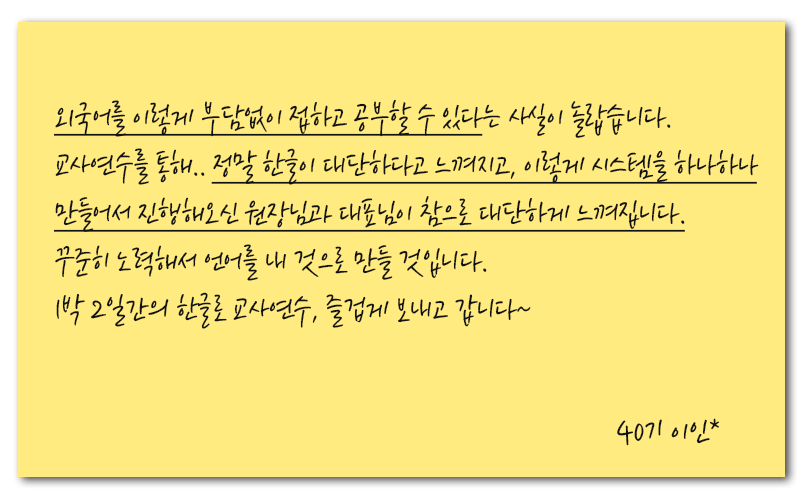 외국어를 이렇게 부담없이 접하고 공부할 수 있다는 사실이 놀랍습니다.
교사연수를 통해.. 정말 한글이 대단하다고 느껴지고, 이렇게 시스템을 하나하나
만들어서 진행해오신 원장님과 대표님이 참으로 대단하게 느껴집니다.
꾸준히 노력해서 언어를 내 것으로 만들 것입니다.
1박 2일간의 한글로 교사연수, 즐겁게 보내고 갑니다~
40기 이인*